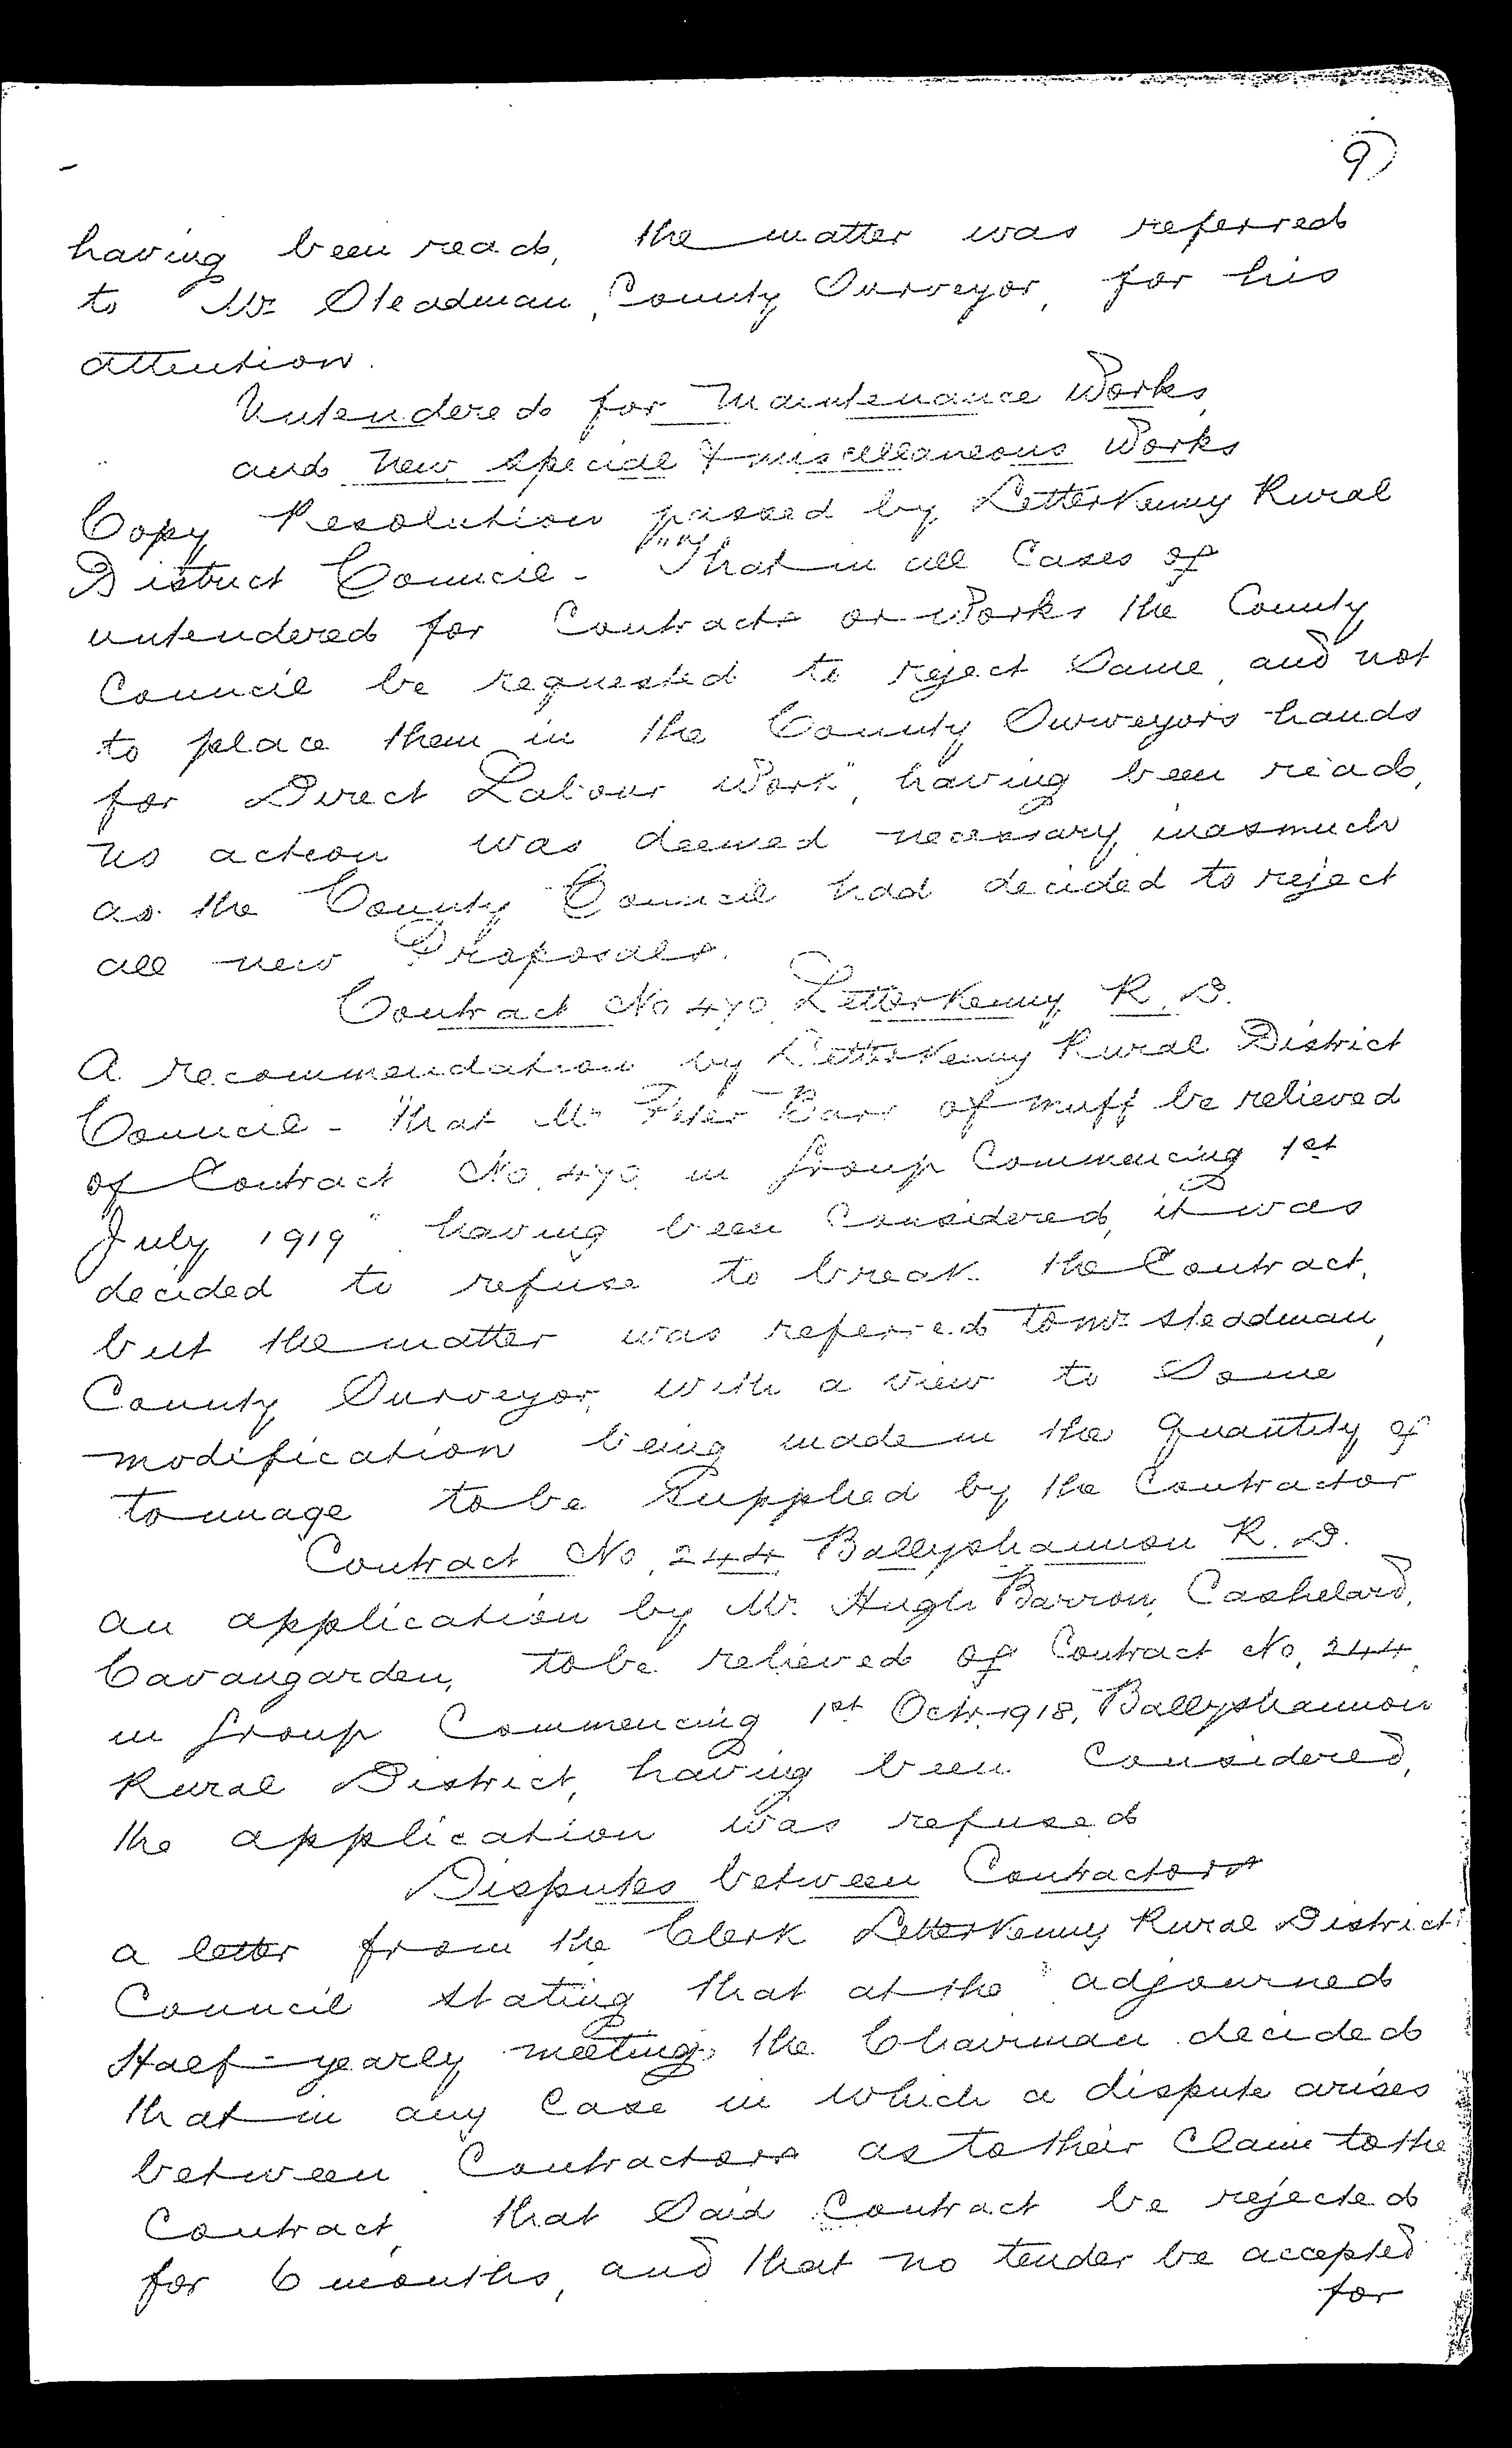 9)
having been read, the matter was referred
to Mr Steadman, County Surveyor, for his
attention.
Untendered for Maintenance Works
and New special & miscellaneous Works
Copy Resolution passed by Letterkenny Rural
District Council - "That in all Cases of
untendered for Contracts or Works the County
Council be requested to reject Same, and not
to place them in the County Surveyors hands
for Direct Labour Work", having been read,
no action was deemed necessary, inasmuch
as the County Council had decided to reject
all new Proposals.
Contract No 470 Letterkenny R.D.
A recommendation by Letterkenny Rural District
Council - "That Mr Peter Barr of Muff be relieved
of Contract No. 470. in Group Commencing 1st
July 1919" having been Considered, it was
decided to refuse to break the Contract,
but the matter was referred to Mr Steadman,
County Surveyor, with a view to Some
modification being made in the Quantity of
tonnage to be Supplied by the Contractor
Contract No. 244 Ballyshannon R.D.
An application by Mr. Hugh Barron, Cashelard,
Cavangarden, to be relieved of Contract No. 244,
in Group Commencing 1st Octr. 1918, Ballyshannon
Rural District, having been Considered,
the application was refused
Disputes between Contractors
A letter from the Clerk Letterkenny Rural District
Council stating that at the adjourned
Half-yearly meeting, the Chairman decided
that in any Case in which a dispute arises
between Contractors as to their Claim to the
Contract, that Said Contract be rejected
for 6 months, and that no tender be accepted
for